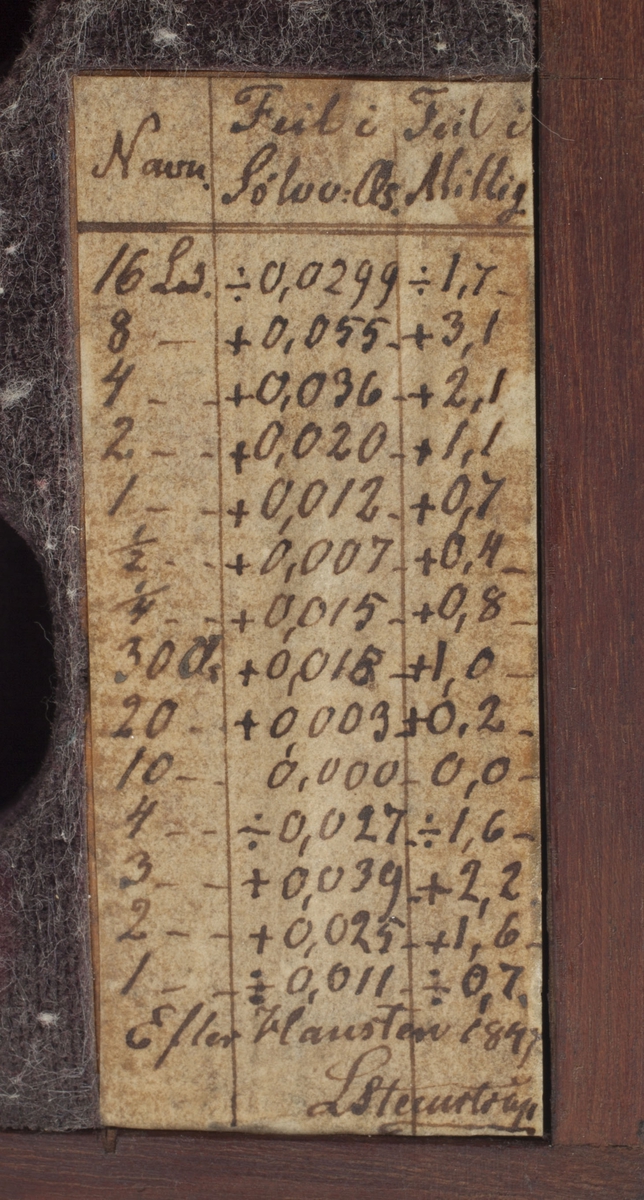 Navn. Feil i Feil i
Sölvv: Øs. Millig
16 Ld. ÷0,0299 ÷1,7-
8 - +0,055- +3,1
4 - - +0,036 - +2,1
2 - - +0,020 - +1,1
1 - - +0,012 - +0,7
1/2 - - +0,007 - +0,4 -
1/4 - - +0,015 - +0,8 -
30 Ø. +0,018 - +1,0 -
20 - +0,003 +0,2 -
10 - - 0,000 - 0,0 -
4 - - ÷0,027 ÷1,6 -
3 - - +0,039 - +2,2
2 - - +0,025 - +1,6 -
1 - - ÷0,011 ÷0,7.
Efter Hausten 1847
LSteenstrup.